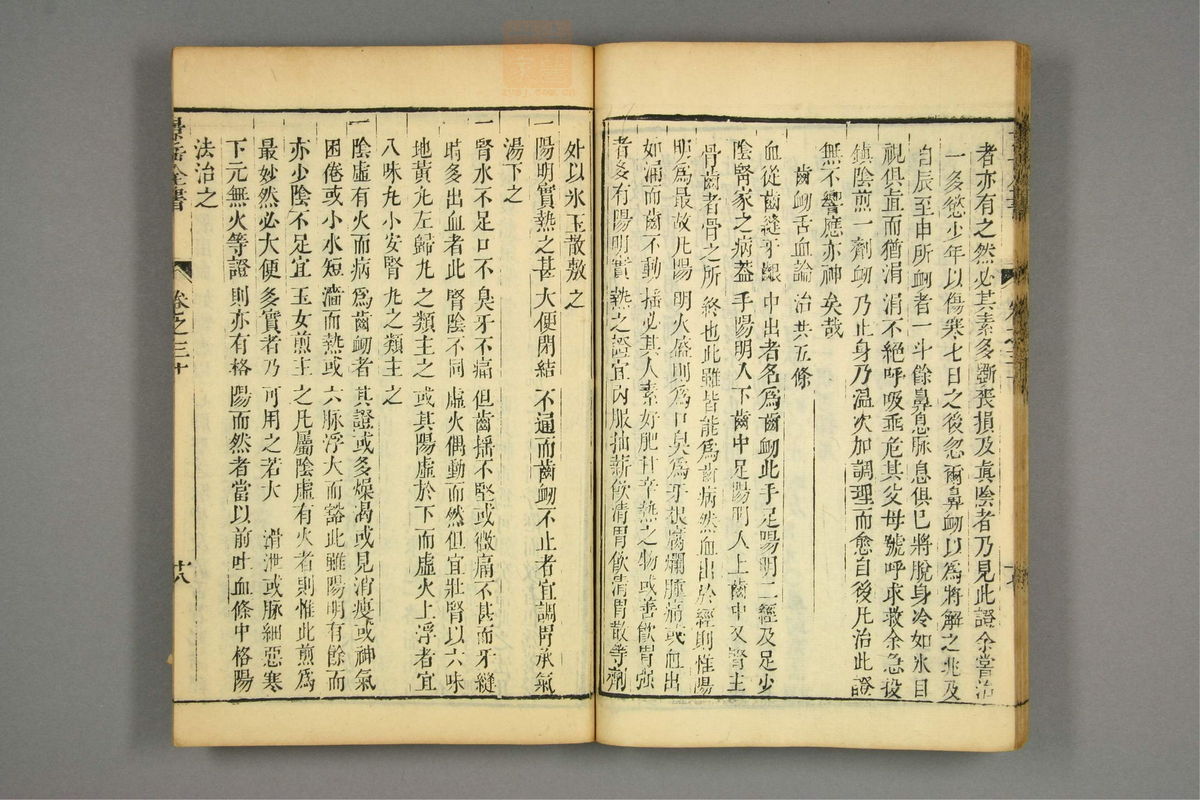 者亦有之然必其素多斲喪損及眞陰者乃見此證余嘗治
一多慾少年以傷寒七日之後忽爾鼻衄以爲將解之兆及
自辰至申所衄者一斗餘鼻息脉息俱已將脫身冷如氷目
視俱直而猶涓涓不絕呼吸垂危其父母號呼求救余急投
鎮陰煎一劑衄乃止身乃温次加調理而愈自後凡治此證
無不響應亦神矣哉
齒衄舌血論治共五條
血從齒縫牙齦中出者名爲齒衄此手足陽明二經及足少
陰腎家之病蓋手陽明入下齒中足陽明入上齒中又腎主
骨齒者骨之所終也此雖皆能爲齒病然血出於經則惟陽
明爲最故凡陽明火盛則爲口臭爲牙根腐爛腫痛或血出
如涌而齒不動搖必其人素好肥甘辛熱之物或善飲胃強
者多有陽明實熱之證宜內服抽薪飲清胃飲清胃散等劑
外以氷玉散敷之
一陽明實熱之甚大便閉結不通而齒衄不止者宜調胃承氣
湯下之
一腎水不足口不臭牙不痛但齒搖不堅或微痛不甚而牙縫
時多出血者此腎陰不固虛火偶動而然但宜壯腎以六味
地黃丸左歸丸之類主之或其陽虛於下而虛火上浮者宜
八味丸小安腎丸之類主之
一陰虛有火而病爲齒衄者其證或多燥渴或見消瘦或神氣
困倦或小水短濇而熱或六脉浮大而豁此雖陽明有餘而
亦少陰不足宜玉女煎主之凡屬陰虛有火者則惟此煎爲
最妙然必大便多實者乃可用之若大滑泄或脉細惡寒
下元無火等證則亦有格陽而然者當以前吐血條中格陽
法治之
景岳全書
卷之三十
廿八